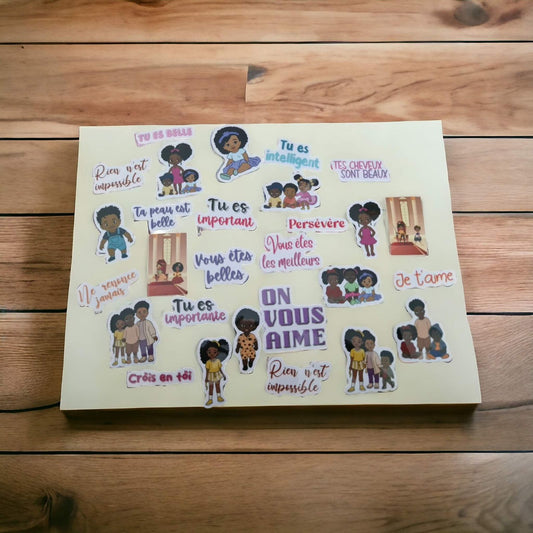 TU ES BELLE
Rien n'est
impossible
Tu es
intelligent
TES CHEVEUX
SONT BEAUX
Ta peau est
belle
Tu es
important
Persévère
Vous êtes
belles
Vous êtes
les meilleurs
Ne renonce
jamais
Je t'aime
Tu es
importante
ON
VOUS
AIME
Crois en toi
Rien n'est
impossible